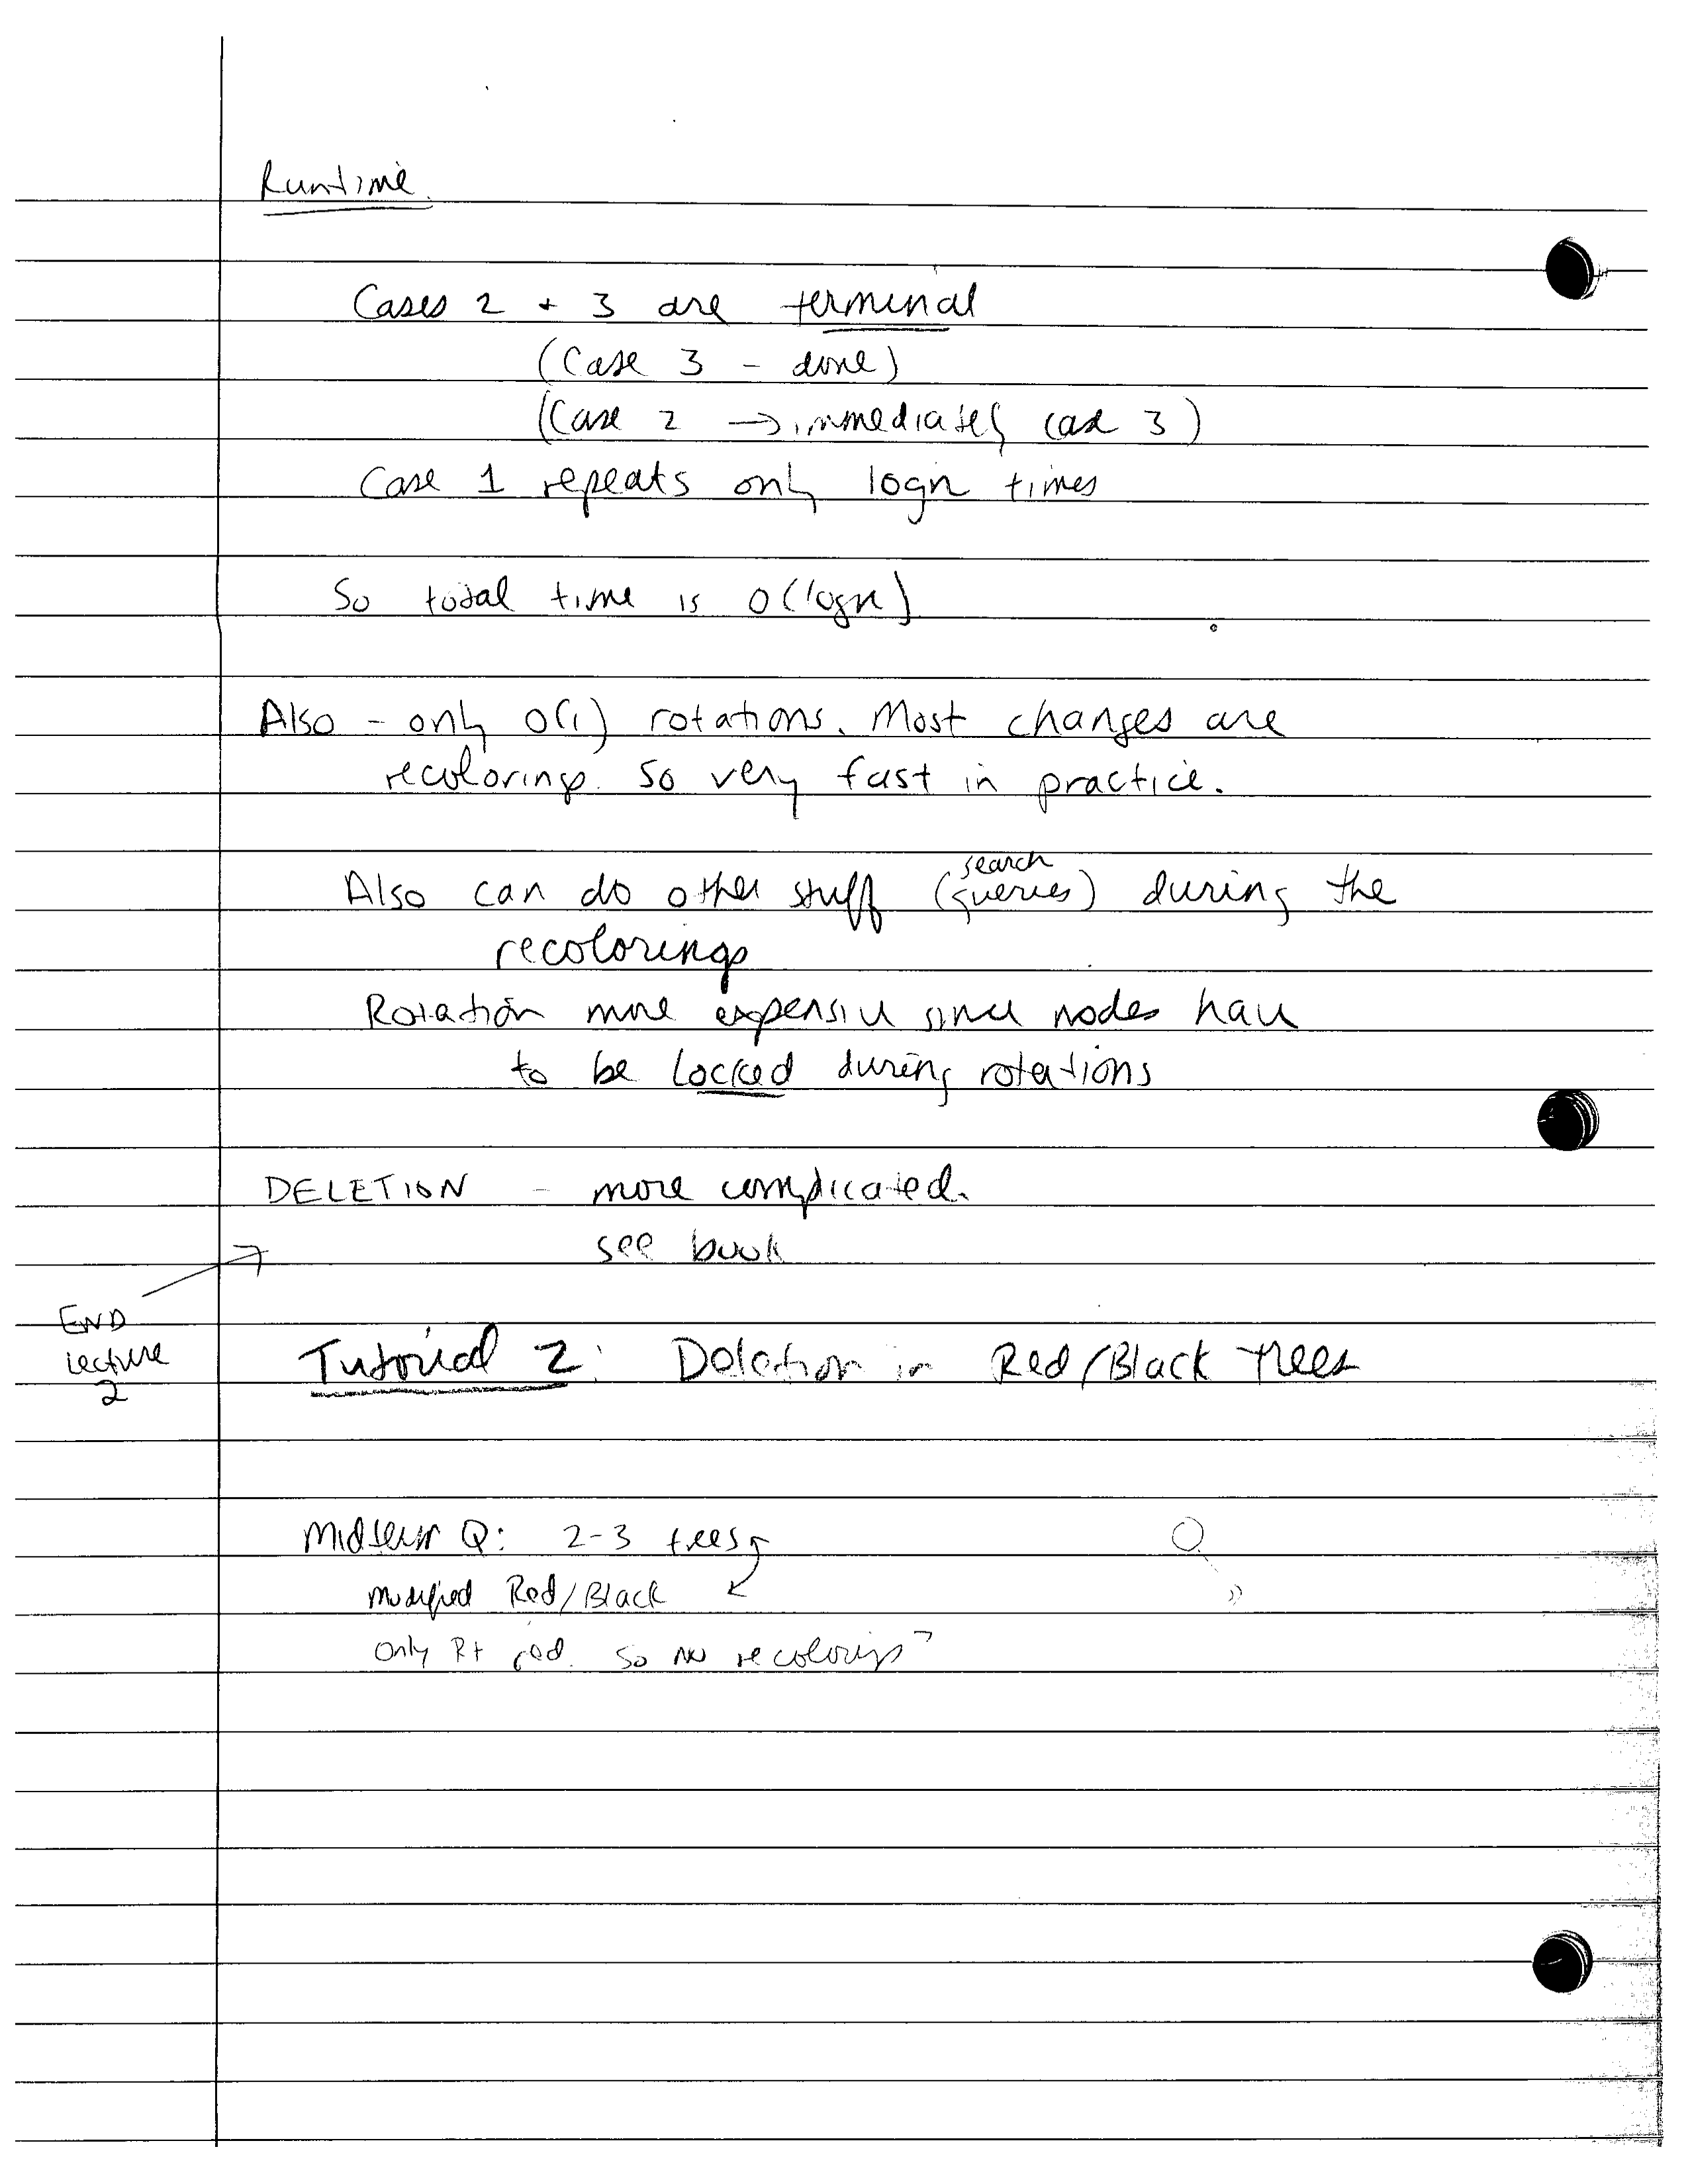 Runtime.
Cases 2 + 3 are terminal
(Case 3 - done)
(Case 2 → immediately case 3)
Case 1 repeats only logn times
So total time is O(logn)
Also - only O(1) rotations. Most changes are
recolorings. So very fast in practice.
Also can do other stuff (search queries) during the
recolorings
Rotation more expensive since nodes have
to be locked during rotations
DELETION - more complicated.
see book
END
Lecture
2
Tutorial 2: Deletion in Red/Black trees
Midterm Q: 2-3 trees
modified Red/Black
Only Rt red. So no recolorings?